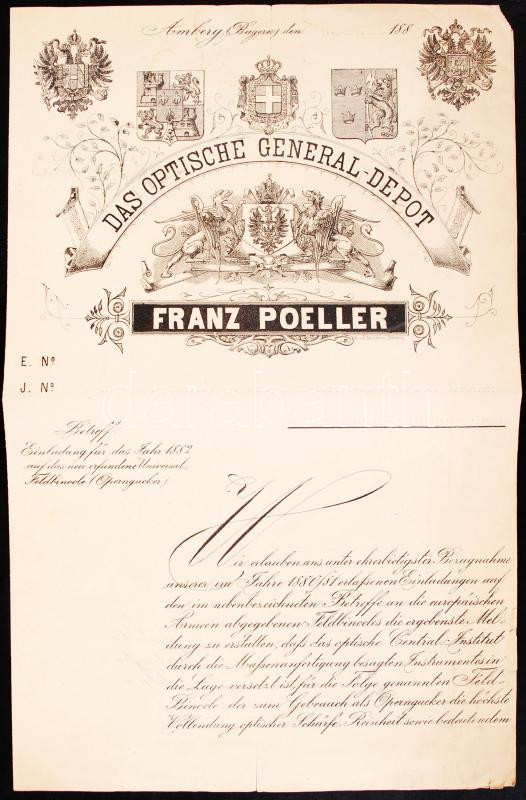 Amberg, (Bayern) den 188
DAS OPTISCHE GENERAL-DEPOT
FRANZ POELLER
E. Nº
J. Nº
Betreff
Einladung für das Jahr 1882
auf das neu erfundene Universal-
Feldbinocle (Operngucker)
Wir erlauben uns unter ehrerbietigster Bezugnahme
unserer im Jahre 1880/81 erlassenen Einladungen auf
den im nebenbezeichneten Betreffe an die europäischen
Armeen abgegebenen Feldbinocles die ergebenste Mel-
dung zu erstatten, daß das optische Central-Institut
durch die Maßenanfertigung besagten Instrumentes in
die Lage versetzt ist, für die Folge genannten Feld-
Binocle der zum Gebrauch als Operngucker die höchste
Vollendung optischer Schärfe, Reinheit sowie bedeutendem
darabanth